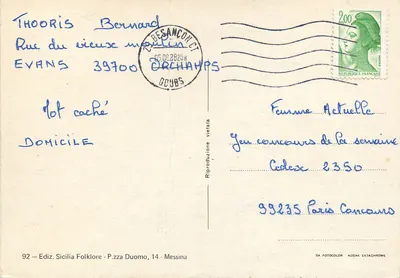 THOORIS Bernard
Rue du vieux moulin
EVANS 39700 ORCHAMPS
Mot caché
DOMICILE
25 BESANCON CT
DOUBS
2,00
Femme Actuelle
Jeu concours de la semaine
Cedex 2350
99235 Paris Concours
Riproduzione vietata
92 – Ediz. Sicilia Folklore - P.zza Duomo, 14 - Messina
DA FOTOCOLOR KODAK EKTACHROME